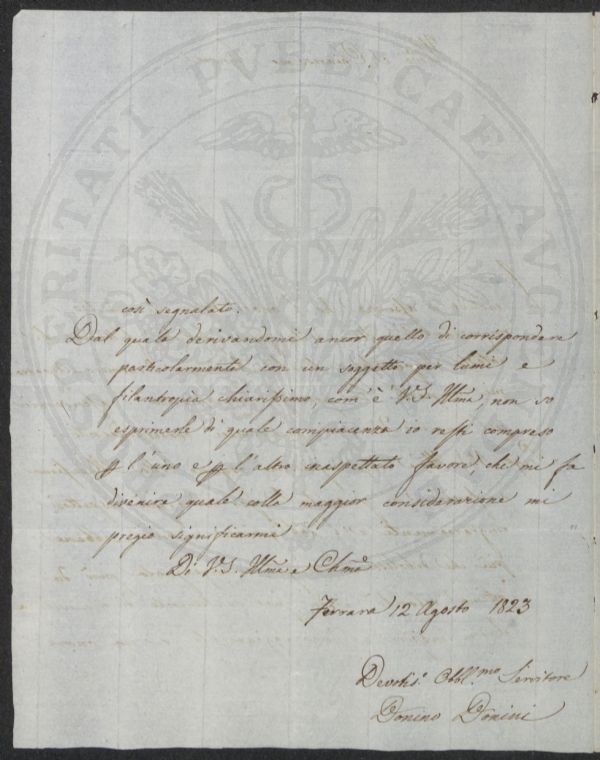 così segnalato.
Dal quale derivandomi ancor quello di corrispondere
particolarmente con un soggetto per lumi e
filantropia chiarissimo, com'è V.S. Illma, non so
esprimerle di quale compiacenza io resti compreso
p l'uno e p l'altro inaspettato favore che mi fa
divenire quale colla maggior considerazione mi
pregio significarmi
Di V.S. Illma e Chma
Ferrara 12 Agosto 1823
Devotis.o Obbl.mo Servitore
Donino Donini
PROSPERITATI PUBLICAE AUGENDAE